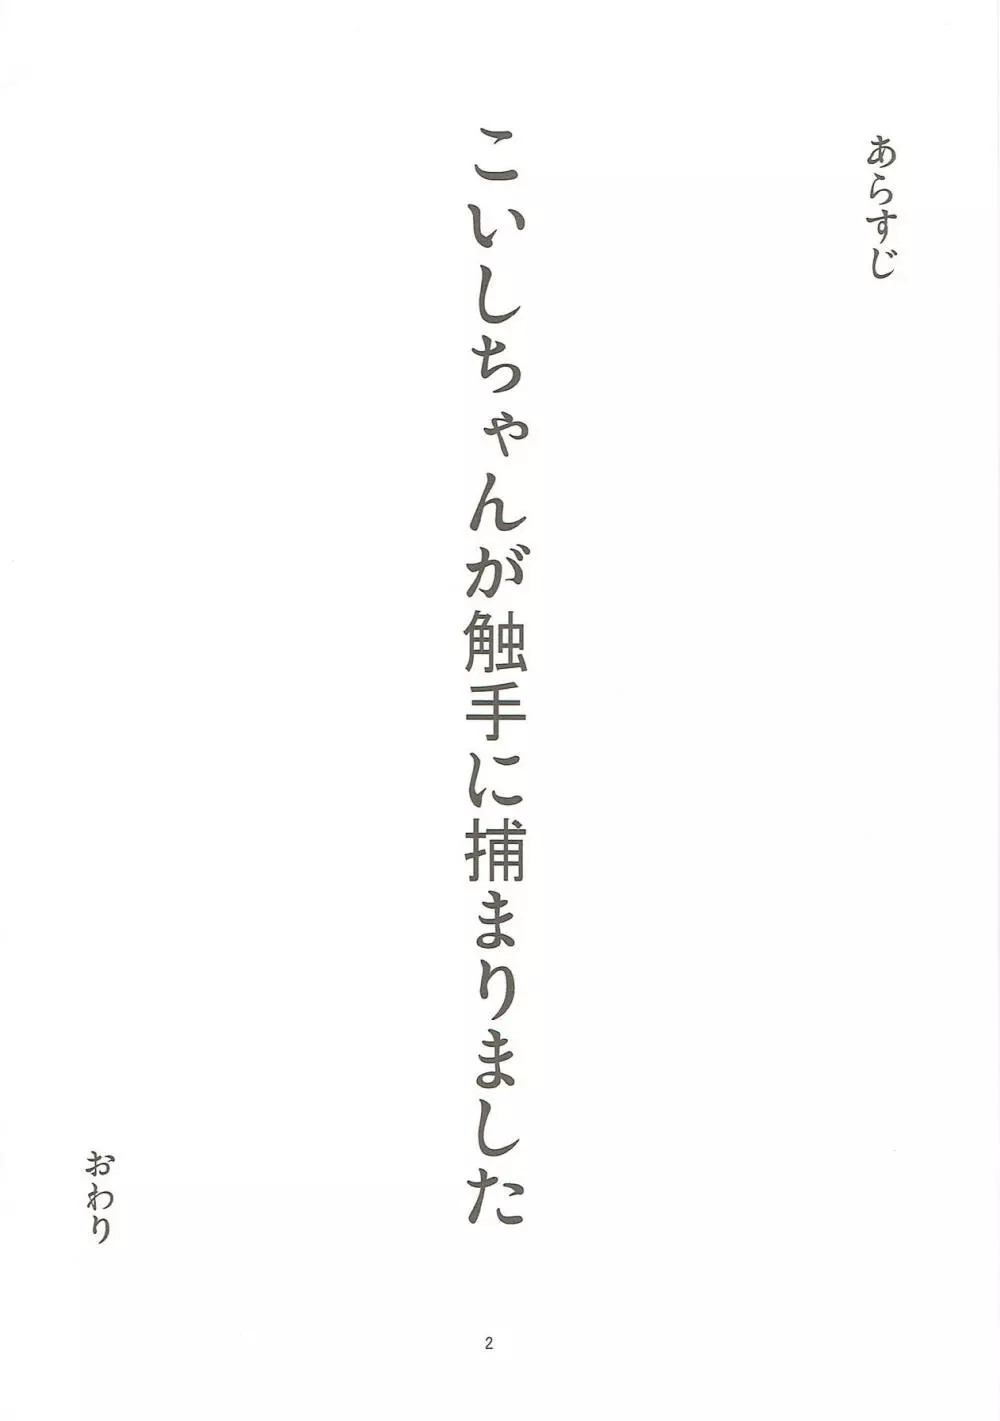 あらすじ
こいしちゃんが触手に捕まりました
おわり
2